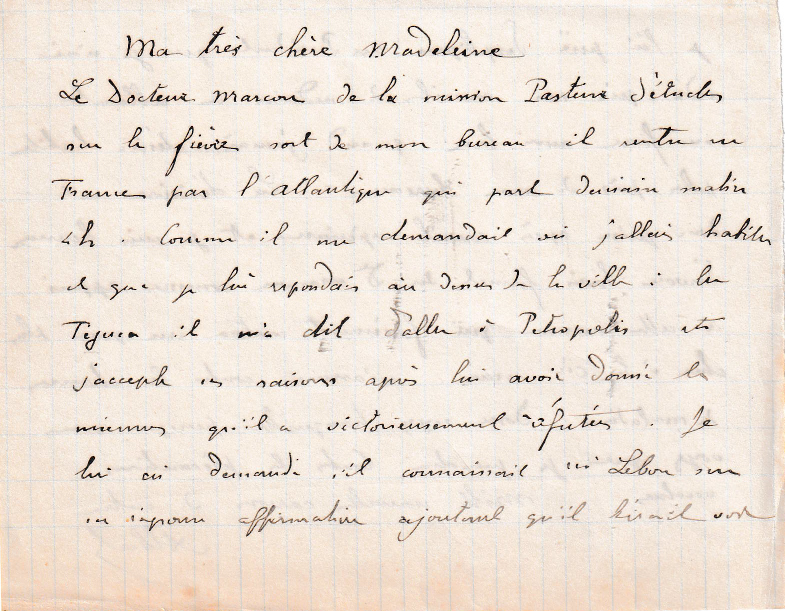 Ma très chère Madeleine
Le Docteur Marcou de la mission Pasteur d'études
sur la fièvre sort de mon bureau il rentre en
France par l'Atlantique qui part demain matin
4h. Comme il me demandait où j'allais habiter
et que je lui repondais au dessus de la ville à la
Tijuca il m'a dit d'aller à Petropolis et
j'accepte ses raisons après lui avoir donné les
miennes qu'il a victorieusement réfutées. Je
lui ai demandé s'il connaissait Lebon sur
sa réponse affirmative ajoutant qu'il voir